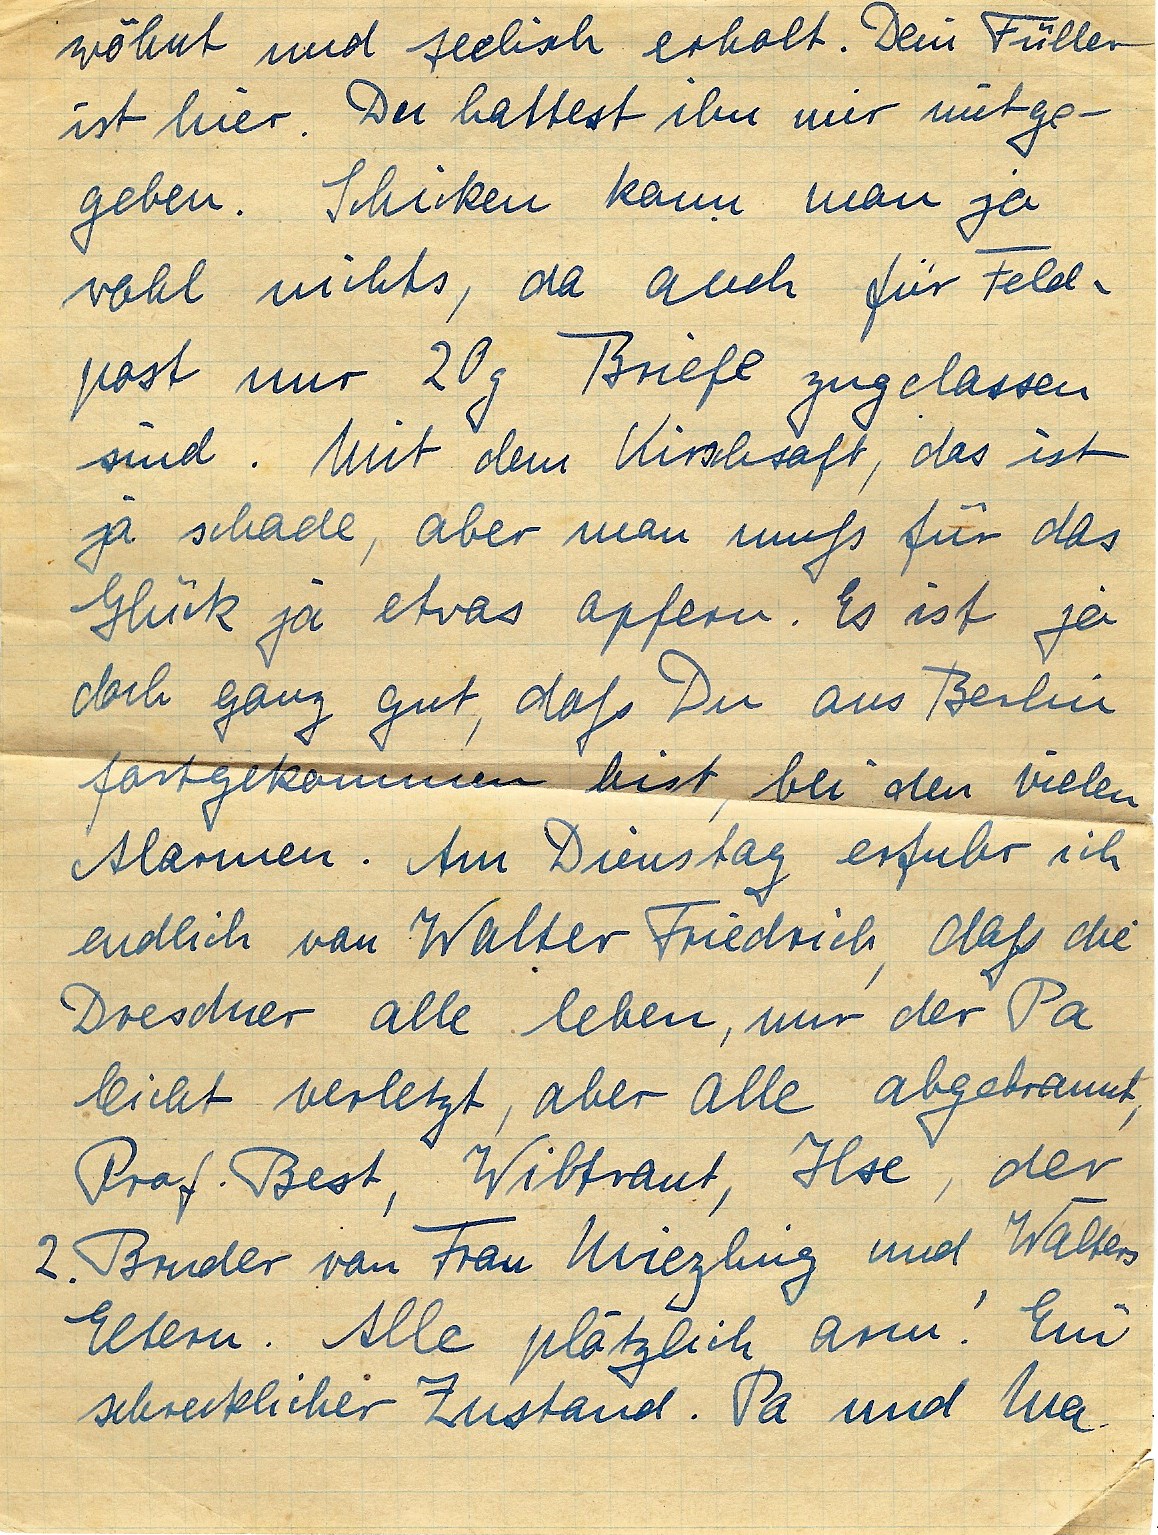 wöhnt und seelisch erholt. Dein Füller
ist hier. Du hattest ihn mir mitge-
geben. Schicken kann man ja
wohl nichts, da auch für Feld-
post nur 20g Briefe zugelassen
sind. Mit dem Kirschsaft, das ist
ja schade, aber man muß für das
Glück ja etwas opfern. Es ist ja
doch ganz gut, daß Du aus Berlin
fortgekommen bist, bei den vielen
Alarmen. Am Dienstag erfuhr ich
endlich von Walter Friedrich, daß die
Dresdner alle leben, nur der Pa
leicht verletzt, aber alle abgebrannt,
Prof. Best, Wibtraut, Ilse, der
2. Bruder von Frau Miezling und Walters
Eltern. Alle plötzlich arm! Ein
schrecklicher Zustand. Pa und Ma